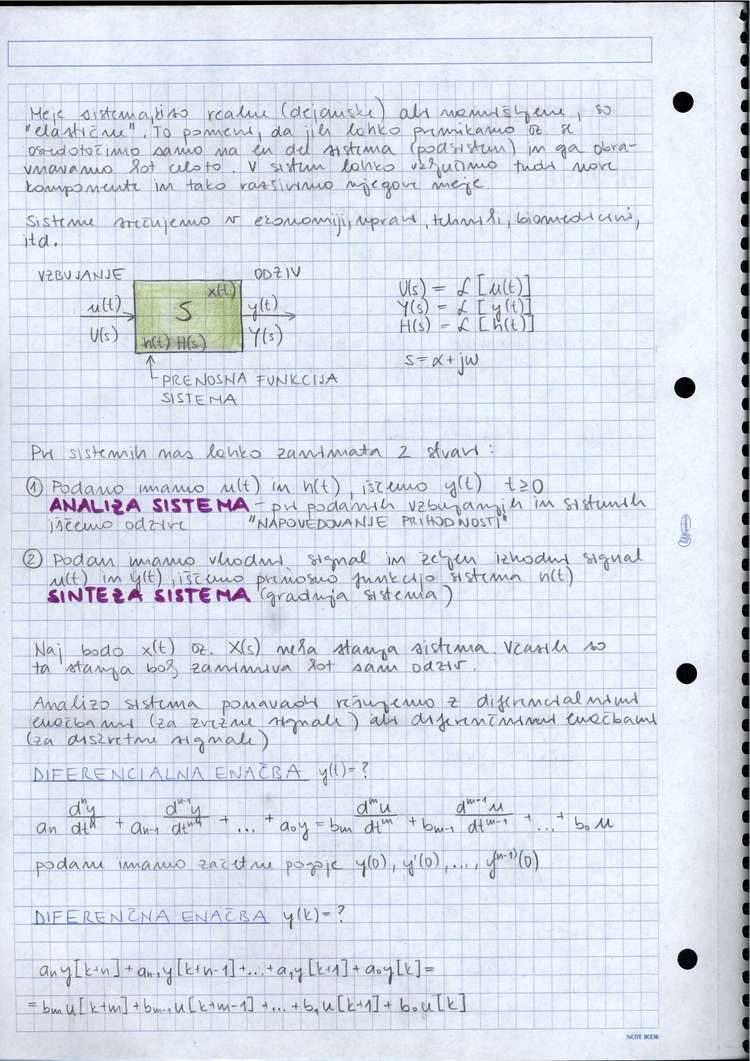 Meje sistema, so realne (dejanske) ali namišljene, so
"elastične". To pomeni, da jih lahko premikamo oz. se
osredotočimo samo na en del sistema (podsistem) in ga obra-
vnavamo kot celoto. V sistem lahko vključimo tudi nove
komponente in tako razširimo njegove meje
Sisteme srečujemo v ekonomiji, upravi, tehniki, biomedicini,
itd.
VZBUJANJE ODZIV
u(t) S x(t) y(t)
U(s) h(t) H(s) Y(s)
PRENOSNA FUNKCIJA
SISTEMA
U(s) = ℒ [u(t)]
Y(s) = ℒ [y(t)]
H(s) = ℒ [h(t)]
s = α + jω
Pri sistemih nas lahko zanimata 2 stvari:
① Podano imamo u(t) in h(t), iščemo y(t) t≥0
ANALIZA SISTEMA - pri podanih vzbujanjih in sistemih
iščemo odzive "NAPOVEDOVANJE PRIHODNOSTI"
② Podan imamo vhodni signal in željen izhodni signal
u(t) in y(t), iščemo prenosno funkcijo sistema h(t)
SINTEZA SISTEMA (gradnja sistema)
Naj bodo x(t) oz. X(s) neka stanja sistema. Včasih so
ta stanja bolj zanimiva kot sam odziv.
Analizo sistema ponavadi rešujemo z diferencialnimi
enačbami (za zvezne signale) ali diferenčnimi enačbami
(za diskretne signale)
DIFERENCIALNA ENAČBA y(t) = ?
aₙ dⁿy/dtⁿ + aₙ₋₁ dⁿ⁻¹y/dtⁿ⁻¹ + ... + a₀y = bₘ dᵐu/dtᵐ + bₘ₋₁ dᵐ⁻¹u/dtᵐ⁻¹ + ... + b₀ u
podane imamo začetne pogoje y(0), y'(0), ..., y⁽ⁿ⁻¹⁾(0)
DIFERENČNA ENAČBA y(k) = ?
aₙy[k+n] + aₙ₋₁y[k+n-1] + ... + a₁y[k+1] + a₀y[k] =
= bₘu[k+m] + bₘ₋₁u[k+m-1] + ... + b₁u[k+1] + b₀u[k]
NOTE BOOK